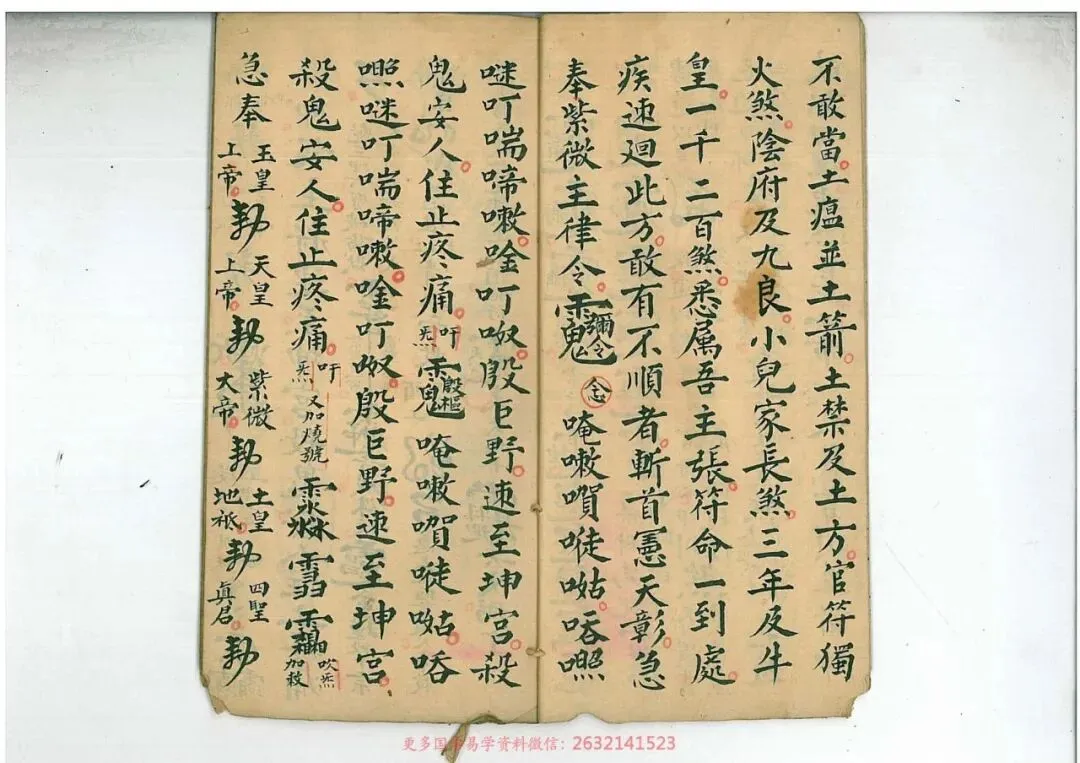 不敢當土瘟並土箭土禁及土方官符獨
火煞陰府及九良小兒家長煞三年及牛
皇一千二百煞悉属吾主張符命一到處
疾速廻此方敢有不順者斬首憲天彰急
奉紫微主律令 彌令 念 唵嗽㗸㖰㗅㕵㷖
㖷叮喘啼嗽唫叮呶殷巨野速至坤宮殺
鬼安人住止疼痛 吘炁 殷樞 唵嗽㗸㖰㗅㕵
㷖㖷叮喘啼嗽唫叮呶殷巨野速至坤宮
殺鬼安人住止疼痛 吘炁 又加燒號 吹炁加敕
急奉 玉皇上帝勅 天皇上帝勅 紫微大帝勅 土皇地祇勅 四聖真君勅
更多国学易学资料微信：2632141523